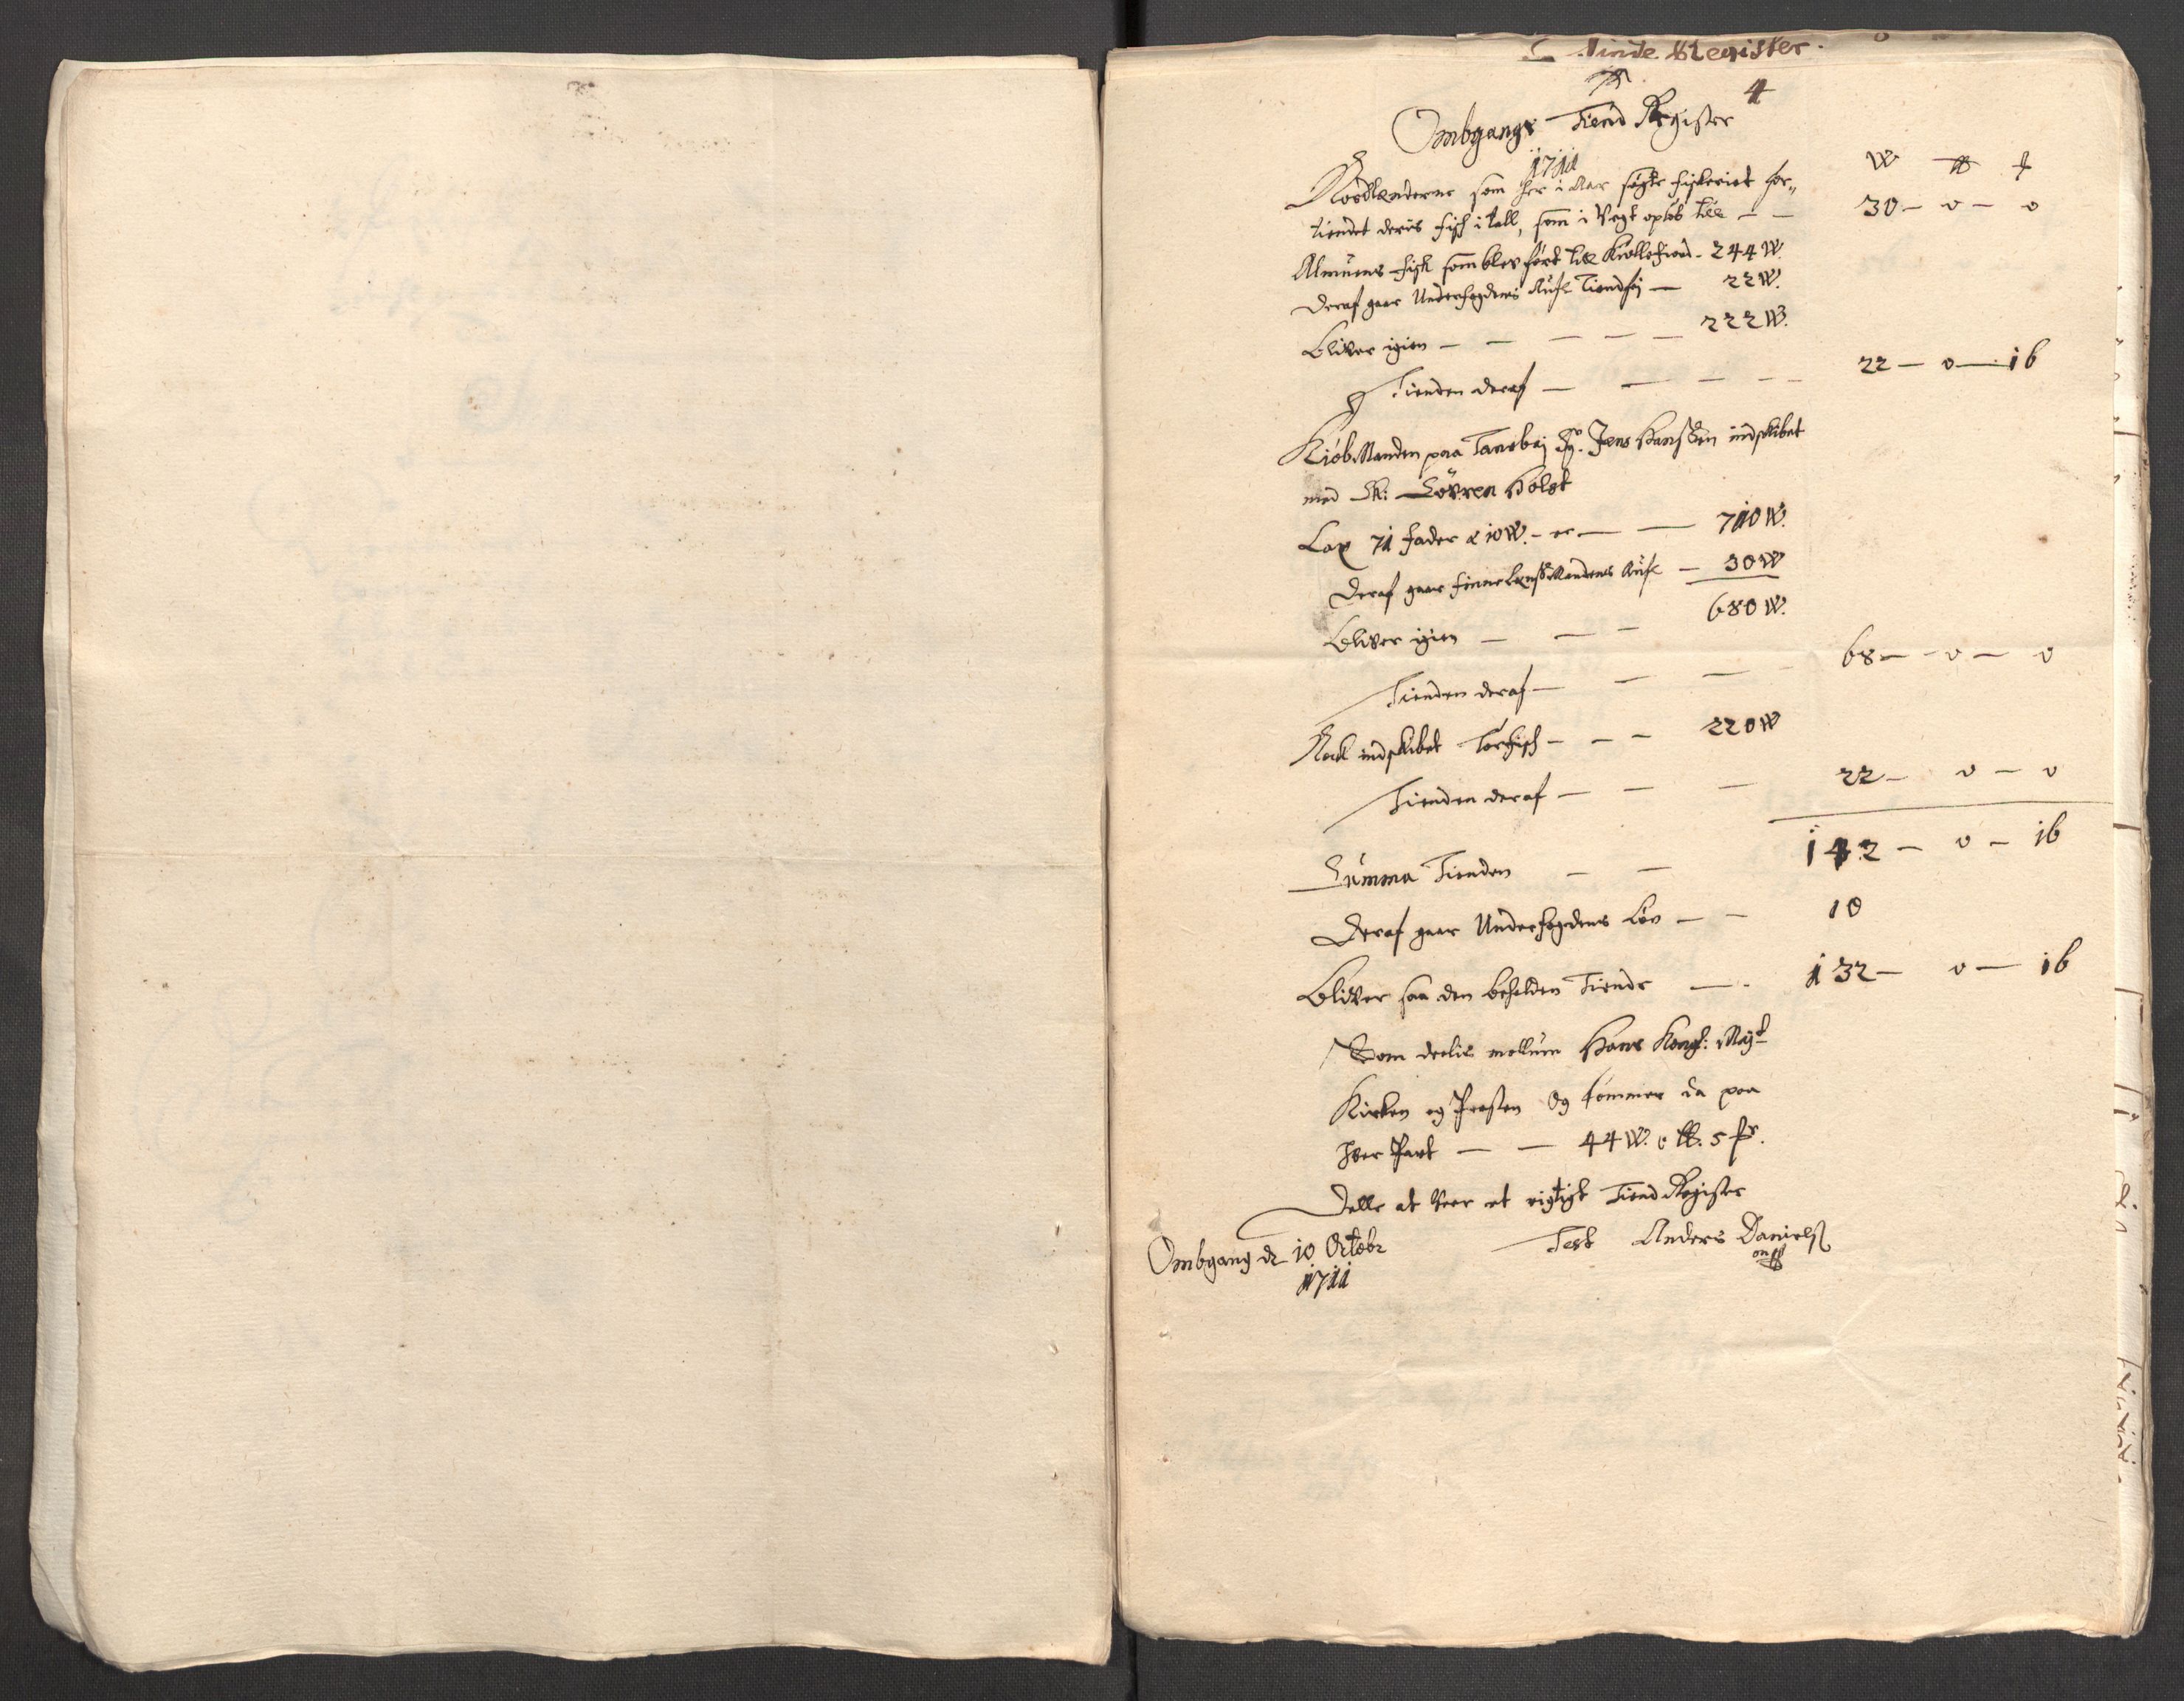 Tiende Register.
4
Ombgangs Tiend Register
1711
W ℔ ꝑ
Nordlænderne som her i Aar søgte fiskeriet for-
tiendet deris fisk i tall, som i Vegt opløb til — — 30 — 0 — 0
Almuens fisk som blev ført til Kiøllefiord - 244 W.
Deraf gaar Underfogdens Tiendfri — 22 W.
Bliver igien — — — — — 222 W.
Tienden deraf — — — — 22 — 0 — 16
KiøbManden paa Tanebay Sr. Jens Hanssøn indskibet
med Sk: Søvren Holst
Lax 71 fader a 10 W. - er — — 710 W.
Deraf gaar finneLensMandens — 30 W
Bliver igien — — — 680 W.
Tienden deraf — — — — 68 — 0 — 0
Nock indskibet Tørfisk — — — 220 W
Tienden deraf — — — 22 — 0 — 0
Summa Tienden — — 142 — 0 — 16
Deraf gaar Underfogdens Løn — — 10
Bliver saa den beholden Tiende — - 132 — 0 — 16
Som deelis mellum Hans Kongl: Mayt
Kirken og Presten Og kommer da paa
hver Part — — 44 W. 0 ℔. 5 ꝑr.
Dette at veer et rigtigt Tiend Register
Test Anders Danielss
Ombgang d 10 Octobr
1711